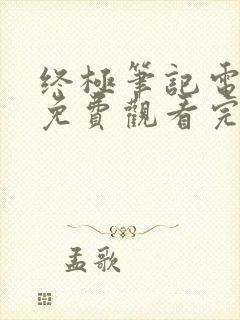 终極筆記電
免費觀看完
孟歌